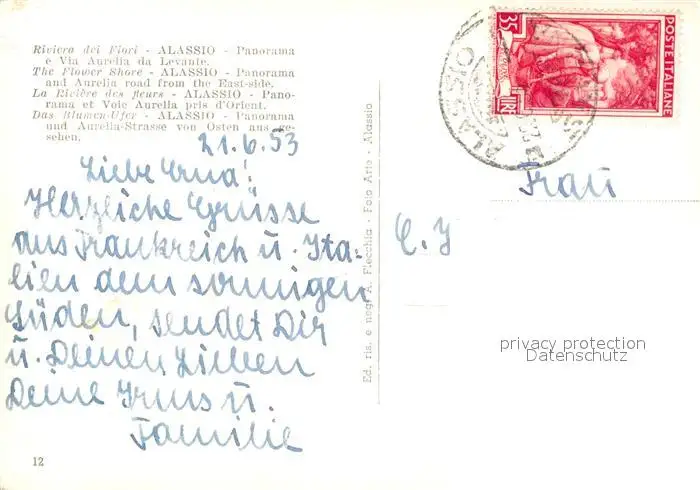 Riviera dei Fiori - ALASSIO - Panorama
e Via Aurelia da Levante.
The Flower Shore - ALASSIO - Panorama
and Aurelia road from the East-side.
La Rivière des fleurs - ALASSIO - Pano-
rama et Voie Aurelia pris d'Orient.
Das Blumen-Ufer - ALASSIO - Panorama
und Aurelia-Strasse von Osten aus ge-
sehen.
21.6.53
Liebe Erna!
Herzliche Grüsse
aus Frankreich u. Ita-
lien dem sonnigen
Süden, sendet Dir
u. Deinen Lieben
Deine u.
Familie
12
Ed. ris. e neg. A. Flecchia - Foto Arte - Alassio
35
LIRE
POSTE ITALIANE
ALASSIO
Frau
E. J
privacy protection
Datenschutz